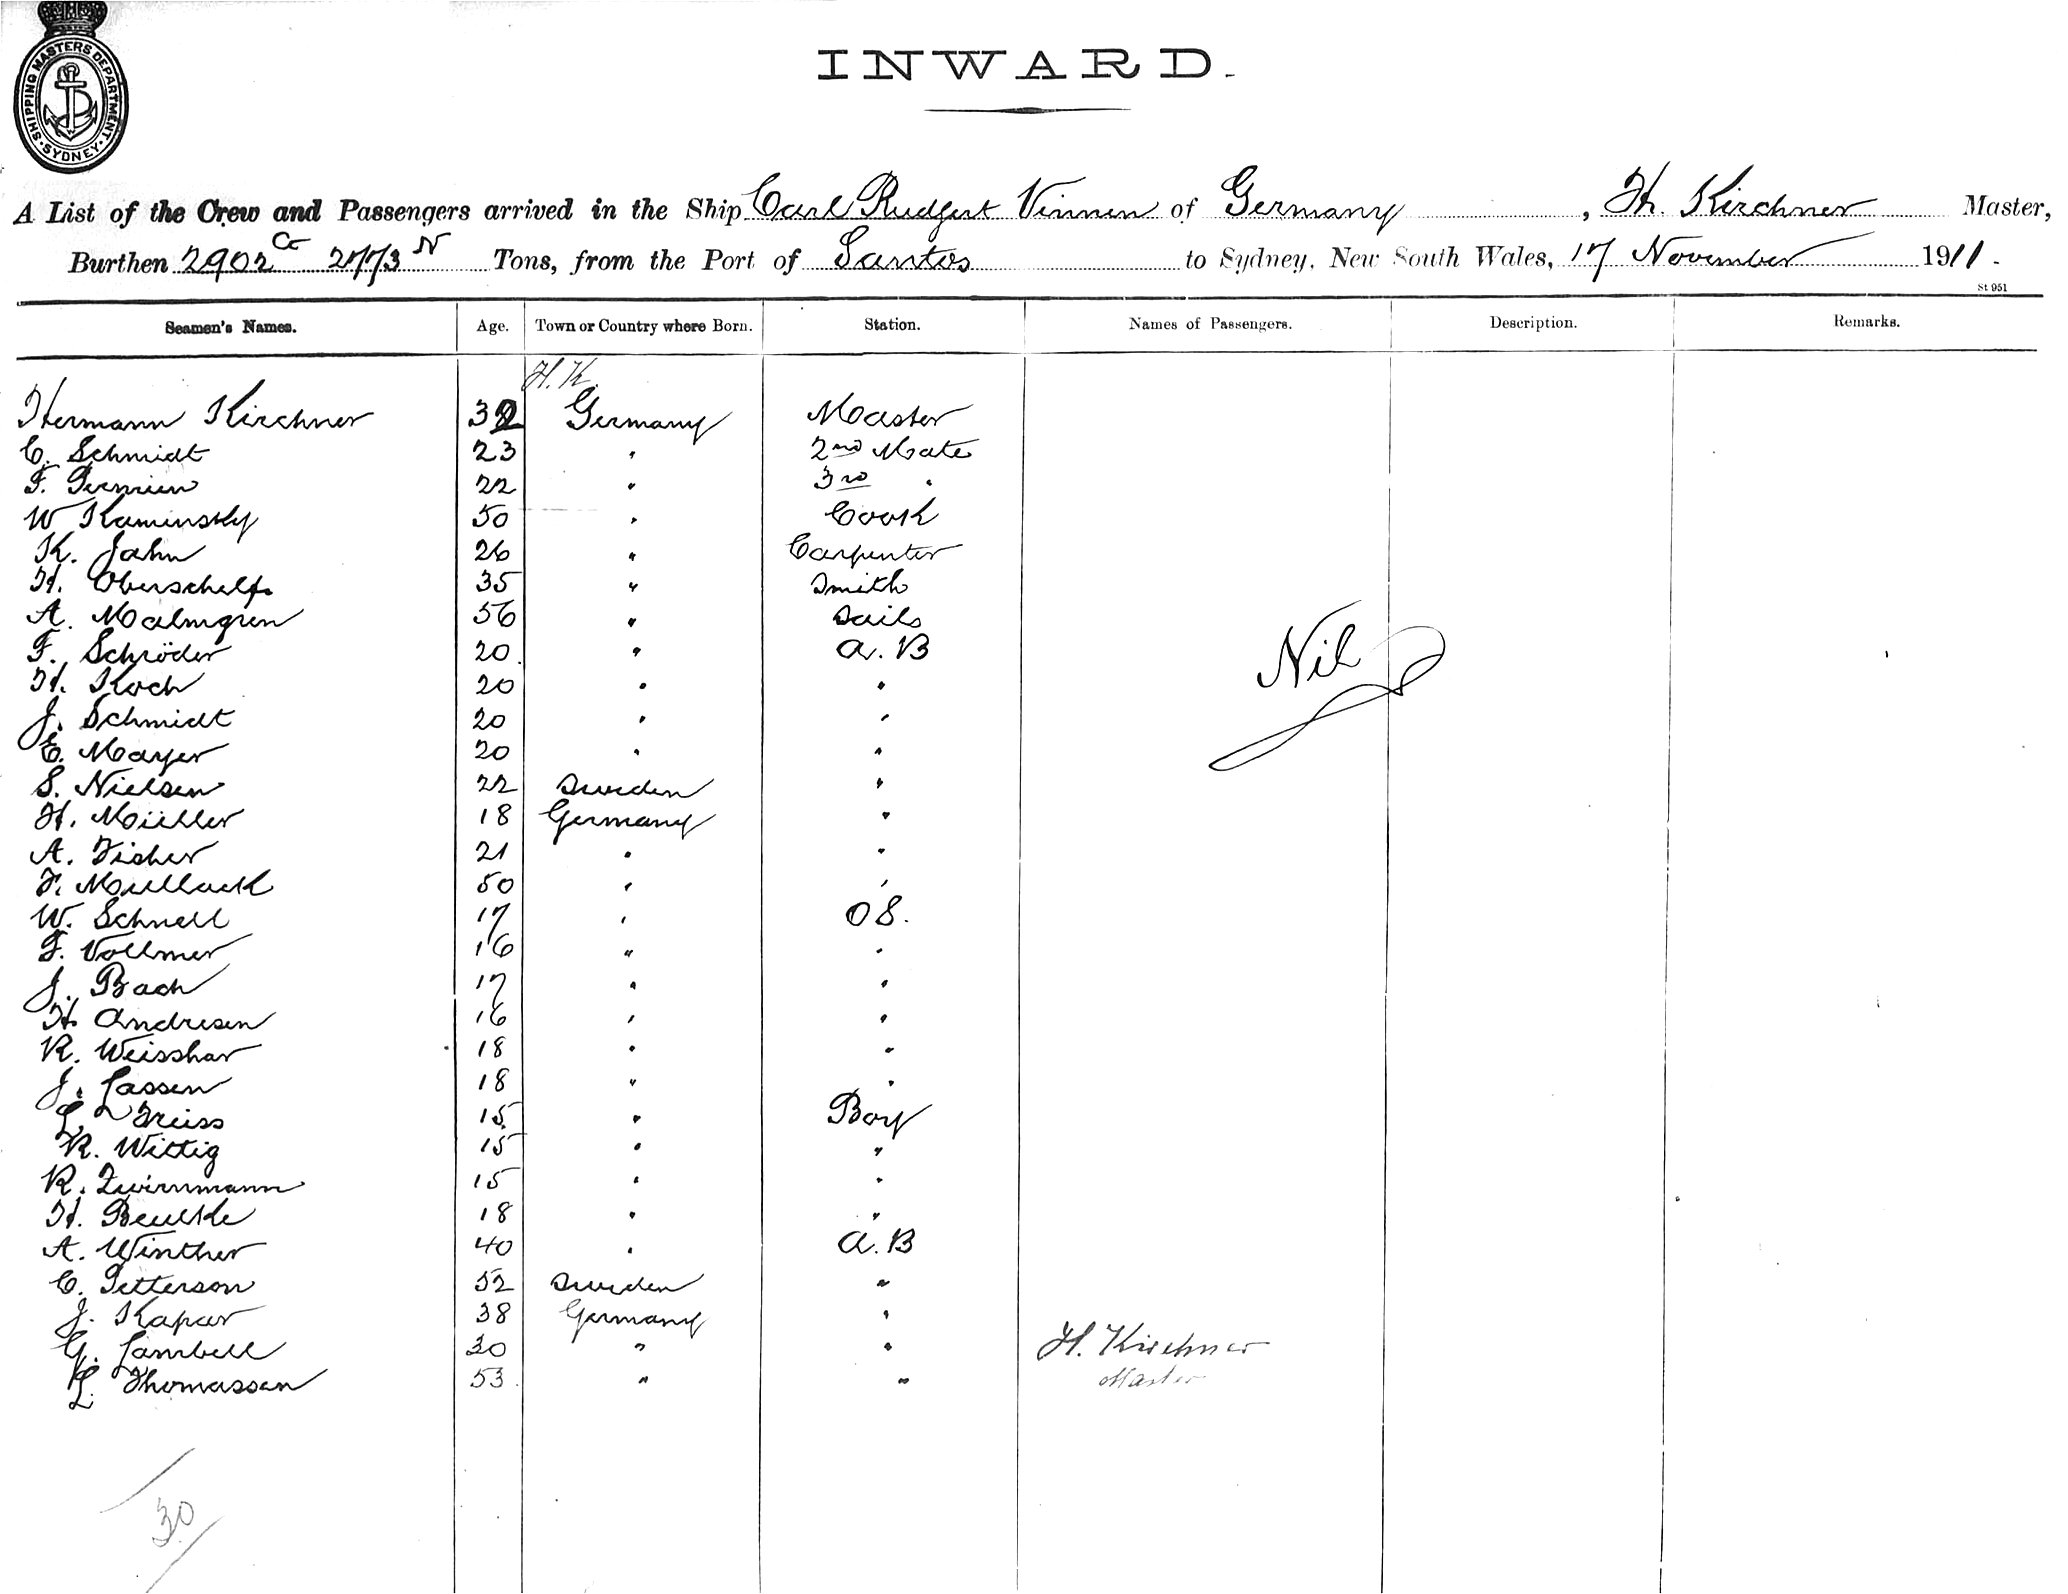 SHIPPING MASTERS DEPARTMENT. SYDNEY.
INWARD.
A List of the Crew and Passengers arrived in the Ship Carl Rudgert Vinnen of Germany, H. Kirchner Master,
Burthen 2902 Gr 2773 N Tons, from the Port of Santos to Sydney, New South Wales, 17 November 1911.
St 951
Seamen's Names. Age. Town or Country where Born. Station. Names of Passengers. Description. Remarks.
H. K.
Hermann Kirchner 32 Germany Master
C. Schmidt 23 " 2nd Mate
F. Permien 22 " 3rd "
W Kaminsky 50 " Cook
K. Jahn 26 " Carpenter
H. Oberschelp 35 " Smith
A. Malmgren 56 " Sails
F. Schröder 20 " A. B
Nil
H. Koch 20 " "
J. Schmidt 20 " "
E. Mayer 20 " "
S. Nielsen 22 Sweden "
H. Müller 18 Germany "
A. Fisher 21 " "
F. Mullack 50 " "
W. Schnell 17 " O S.
F. Vollmer 16 " "
J. Bach 17 " "
H. Andresen 16 " "
R. Weisshar 18 " "
J. Lassen 18 " "
L. Treiss 15 " Boy
R. Wittig 15 " "
R. Zwirnmann 15 " "
H. Beulke 18 " "
A. Winther 40 " A. B
C. Petterson 52 Sweden "
J. Kapar 38 Germany "
G. Lambell 30 " " H. Kirchner
L. Thomassen 53 " " Master
30